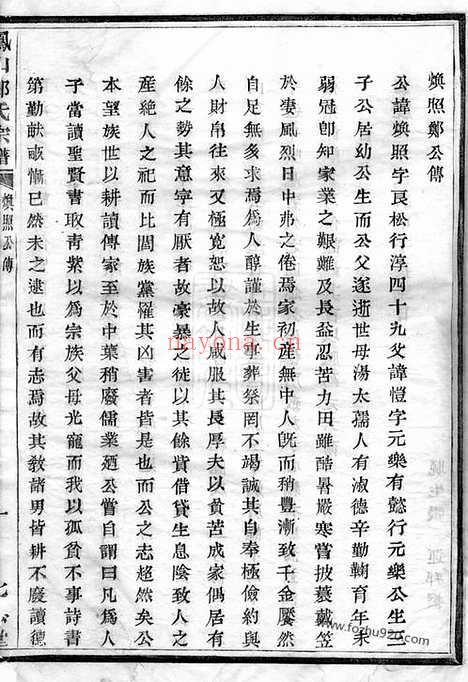 煥照鄭公傳
公諱煥照字良松行淳四十九父諱愷字元樂有懿行元樂公生三
子公居幼公生而公父遂逝世母湯太孺人有淑德辛勤鞠育年未
弱冠卽知家業之艱難及長益忍苦力田雖酷暑嚴寒嘗披蓑戴笠
於凄風烈日中弗之倦焉家初産無中人旣而稍豐漸致千金饜然
自足無多求焉爲人醇謹於生事葬祭罔不竭誠其自奉極儉約與
人財帛往來又極寬恕以故人咸服其長厚夫以貧苦成家偶居有
餘之勢其意寧有厭者故豪暴之徒以其餘貲借貸生息陰致人之
産絶人之祀而比閭族黨罹其凶害者皆是公之志超然矣公
本望族世以耕讀傳家至於中葉稍廢儒業廼公嘗自謂曰凡爲人
子當讀聖賢書取靑紫以爲宗族父母光寵而我以孤貧不事詩書
第勤畎畝慚已然未之逮也而有志焉故其敎諸男皆耕不廢讀德
鳳山鄭氏宗譜
煥照公傳
一
nayona.cn
www.fozhu920.com